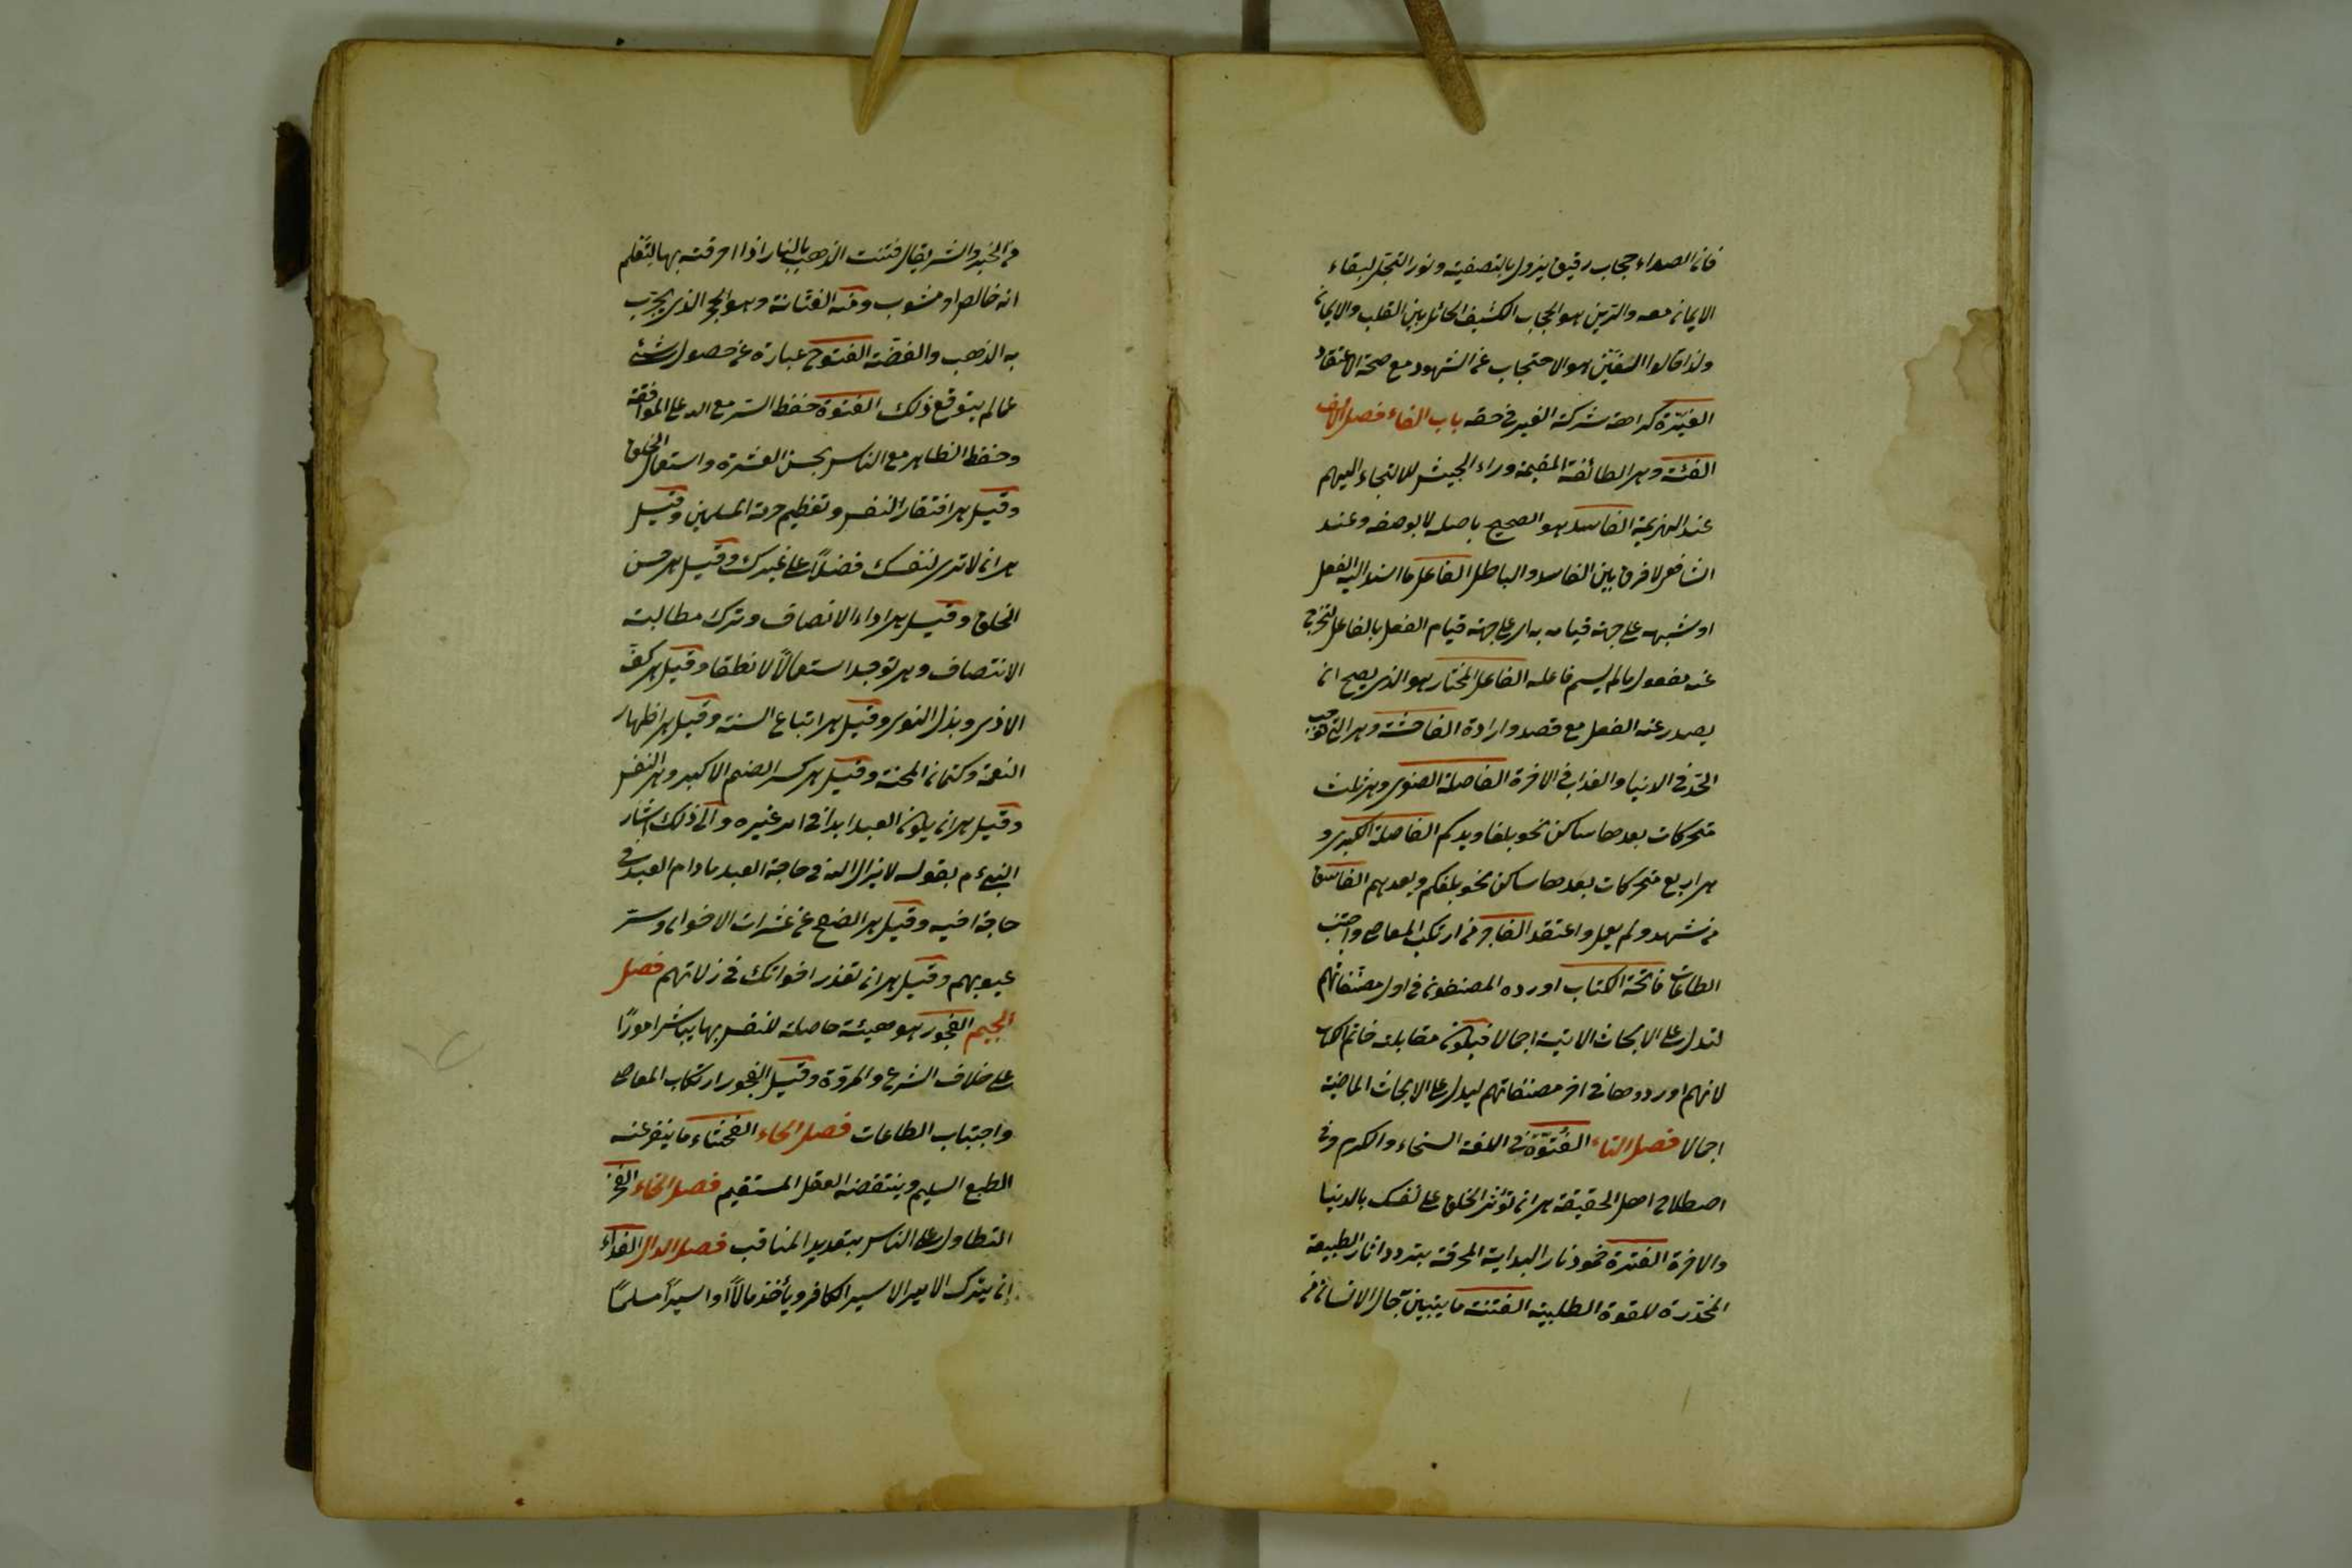 فان الصداء حجاب رقيق يزول بالتصفية ونور التجلي لبقاء
الايمان معه والرين هو الحجاب الكثيف الحائل بين القلب والايمان
ولذا قالوا الغين هو الاحتجاب عن الشهود مع صحة الاعتقاد
الغيرة كراهة شركة الغير في حقه باب الفاء فصل الالف
الفئة وهي الطائفة المقيمة وراء الجيش للالتجاء اليهم
عند الهزيمة الفاسد هو الصحيح باصله لا بوصفه وعند
الشافعي لا فرق بين الفاسد والباطل الفاعل ما اسند اليه الفعل
او شبهه على جهة قيامه به اي على جهة قيام الفعل بالفاعل ليخرج
عنه مفعول ما لم يسم فاعله الفاعل المختار هو الذي يصح ان
يصدر عنه الفعل مع قصد وارادة الفاحشة وهي التي توجب
الحد في الدنيا والعذاب في الاخرة الفاصلة الصغرى وهي ثلث
متحركات بعدها ساكن نحو بلغا ويدكم الفاصلة الكبرى و
هي اربع متحركات بعدها ساكن نحو بلغكم ويعدهم الفاسق
من شهد ولم يعمل واعتقد الفاجر من ارتكب المعاصي واجتنب
الطاعات فاتحة الكتاب اورده المصنفون في اول مصنفاتهم
لتدل على الابحاث الاتية اجمالا فيكون مقابلة خاتم الكتاب
لانهم اوردوها في اخر مصنفاتهم ليدل على الابحاث الماضية
اجمالا فصل التاء الفتوة في اللغة السخاء والكرم وفي
اصطلاح اهل الحقيقة هي ان تؤثر الخلق على نفسك بالدنيا
والاخرة الفترة خمود نار البداية المحرقة بتردد اثار الطبيعة
المخدرة للقوة الطلبية الفتنة ما يتبين به حال الانسان من
من الخير والشر يقال فتنت الذهب بالنار اذا احرقته بها لتعلم
انه خالص او مشوب ومنه الفتانة وهو الحجر الذي يجرب
به الذهب والفضة الفتوح عبارة عن حصول شئ
عما لم يتوقع ذلك الفتوة حفظ السر مع الله على الموافقة
وحفظ الظاهر مع الناس بحسن العشرة واستعمال الخلق
وقيل هي افتقار النفس وتعظيم حرمة المسلمين وقيل
هي ان لا ترى لنفسك فضلا على غيرك وقيل هي حسن
الخلق وقيل هي اداء الانصاف وترك مطالبة
الانتصاف وهي توجد استعمالا لا نطقا وقيل هي كف
الاذى وبذل النوى وقيل هي اتباع السنة وقيل هي اظهار
النعمة وكتمان المحنة وقيل هي كسر الصنم الاكبر وهي النفس
وقيل هي ان يكون العبد ابدا في امر غيره والى ذلك اشار
النبي ءم بقوله لا يزال الله في حاجة العبد ما دام العبد في
حاجة اخيه وقيل هي الصفح عن عثرات الاخوان وستر
عيوبهم وقيل هي ان تعذر اخوانك في زلاتهم فصل
الجيم الفجور هو هيئة حاصلة للنفس بها يباشر امورًا
على خلاف الشرع والمروة وقيل الفجور ارتكاب المعاصي
واجتناب الطاعات فصل الحاء الفحشاء ما ينفر عنه
الطبع السليم وينتقضه العقل المستقيم فصل الخاء الفخر
التطاول على الناس بتعديد المناقب فصل الدال الفداء
ان يترك الامير الاسير الكافر ويأخذ مالاً او اسيراً مسلماً